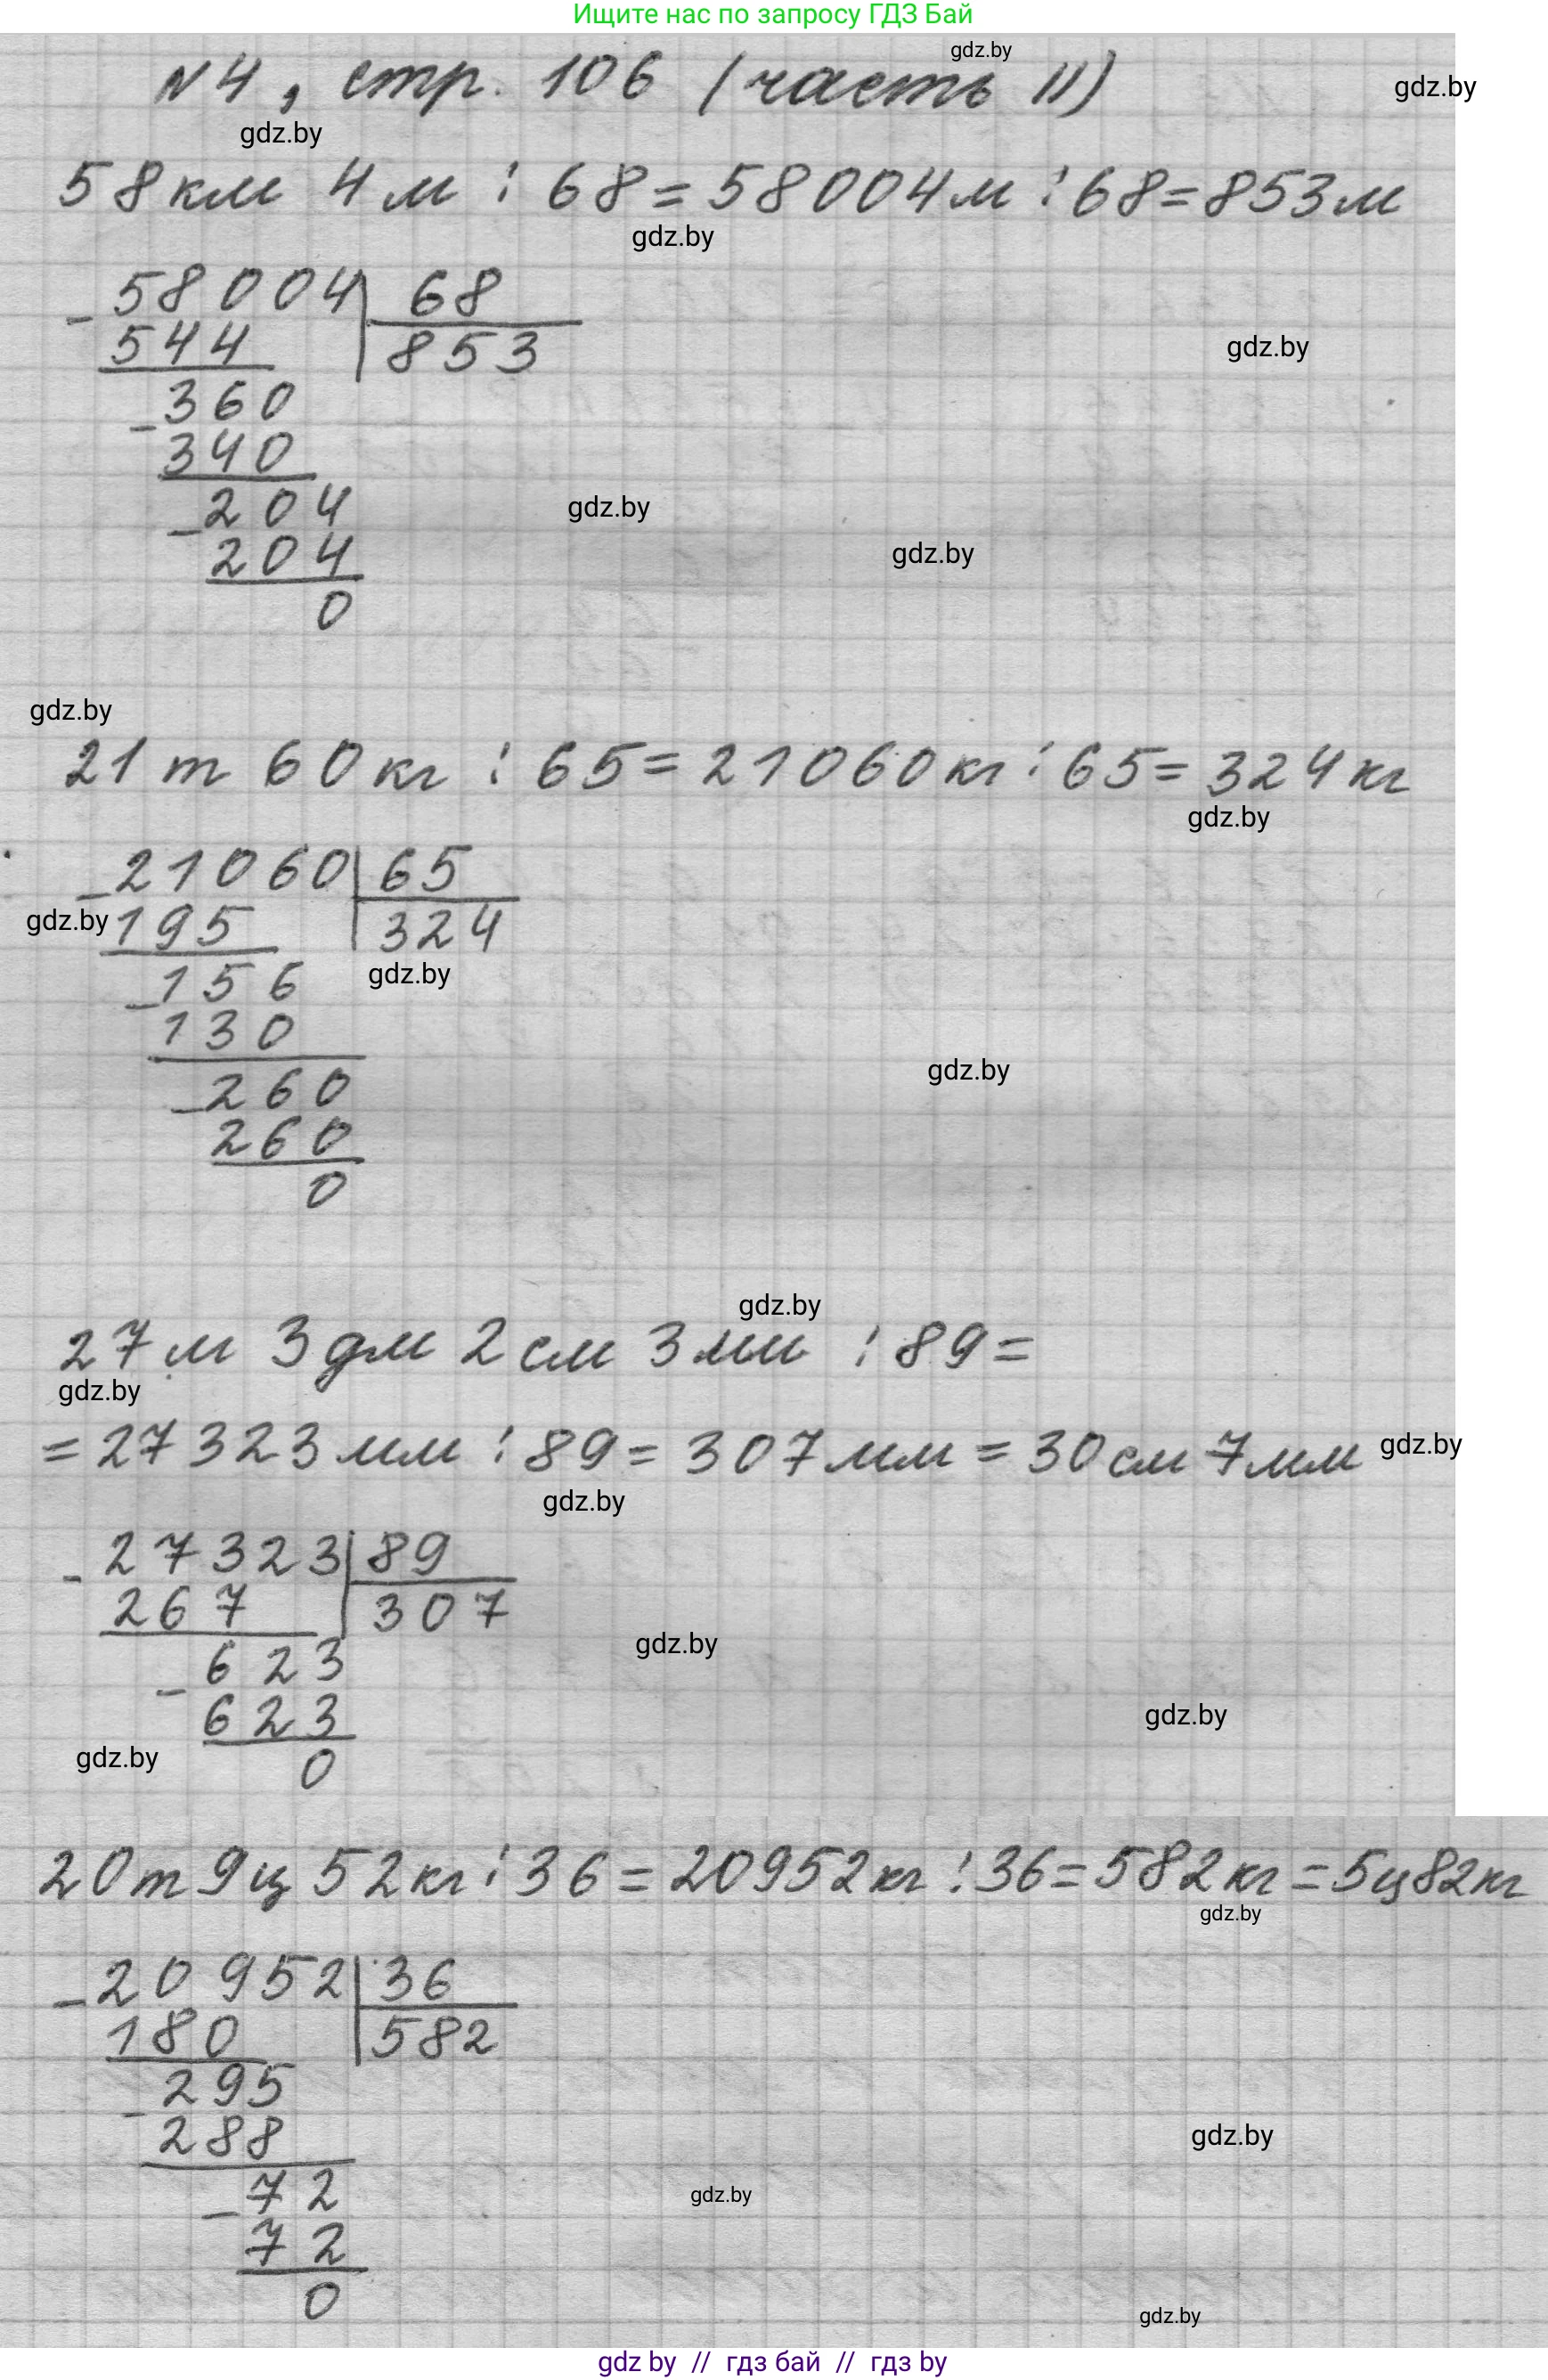 Ищите нас по запросу ГДЗ Бай
gdz.by
№4, стр. 106 (часть II)
gdz.by
gdz.by
58км 4м : 68 = 58004м : 68 = 853м
gdz.by
- 58004 | 68
544 | 853
gdz.by
- 360
340
- 204
gdz.by
204
gdz.by
0
gdz.by
21т 60кг : 65 = 21060кг : 65 = 324кг
gdz.by
- 21060 | 65
gdz.by
195 | 324
- 156
gdz.by
130
gdz.by
- 260
260
0
gdz.by
27м 3дм 2см 3мм : 89 =
gdz.by
= 27323мм : 89 = 307мм = 30см 7мм
gdz.by
gdz.by
- 27323 | 89
267 | 307
gdz.by
- 623
623
gdz.by
gdz.by
0
20т 9ц 52кг : 36 = 20952кг : 36 = 582кг = 5ц82кг
gdz.by
- 20952 | 36
180 | 582
- 295
288
gdz.by
- 72
gdz.by
72
0
gdz.by
gdz by // гдз бай // гдз by